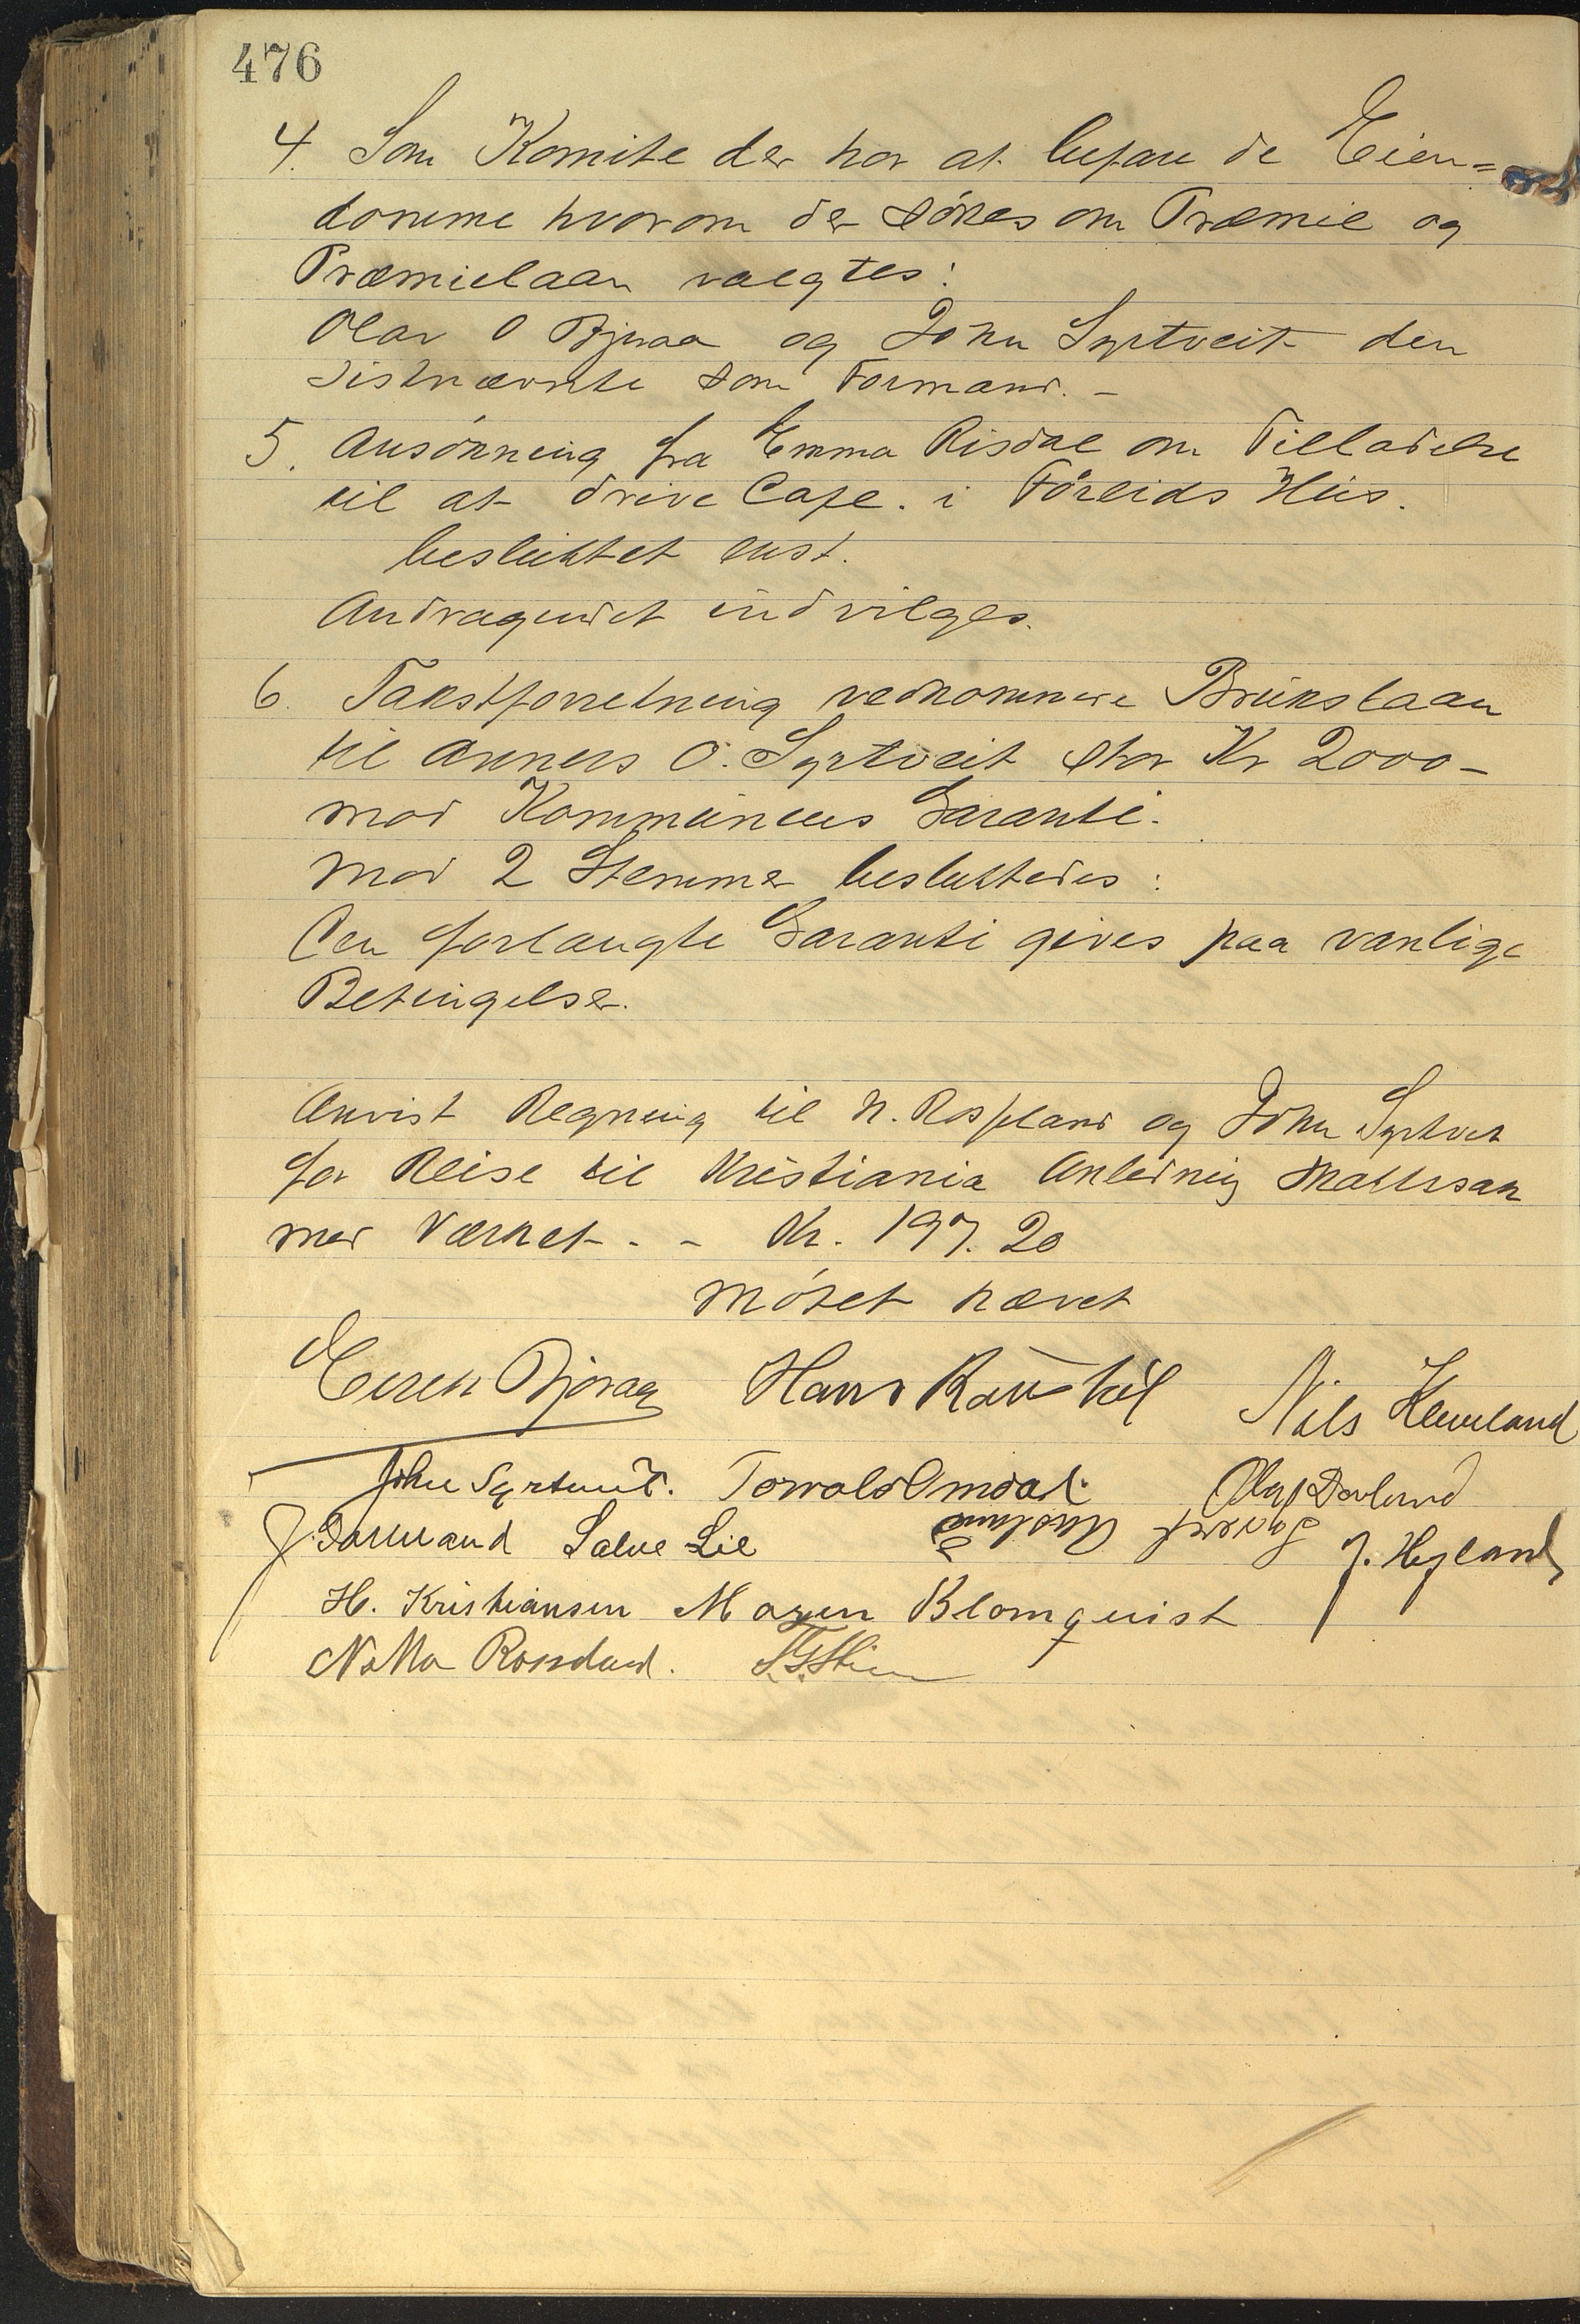 476
4. Som Komite der har at befare de Eien=
domme hvorom der søkes om Præmie og
Præmielaan valgtes:
Olav O Bjuraa og John Syrtveit den
sistnævnte som Formand. -
5. Ansøkning fra Emma Risdal om Tilladelse
til at drive Cafe. i Føreids Hus.
besluttet enst.
Andragendet indvilges.
6. Takstforretning vedkommende Brukslaan
til Anners O. Syrtveit stor Kr 2000 -
mod Kommunens Garanti.
Mod 2 Stemmer besluttedes:
Den forlangte Garanti gives paa vanlige
Betingelser.
Anvist Regning til N. Rosseland og John Syrtveit
for Reise til Kristiania Anledning
med Værket. - - Kr. 197.20
Møtet hævet
Bjoraa Hans Nils Kleveland
John Syrtveit. Torvald Omdal.
Salve Lie
H. Kristiansen Maren Blomquist
Rosseland.